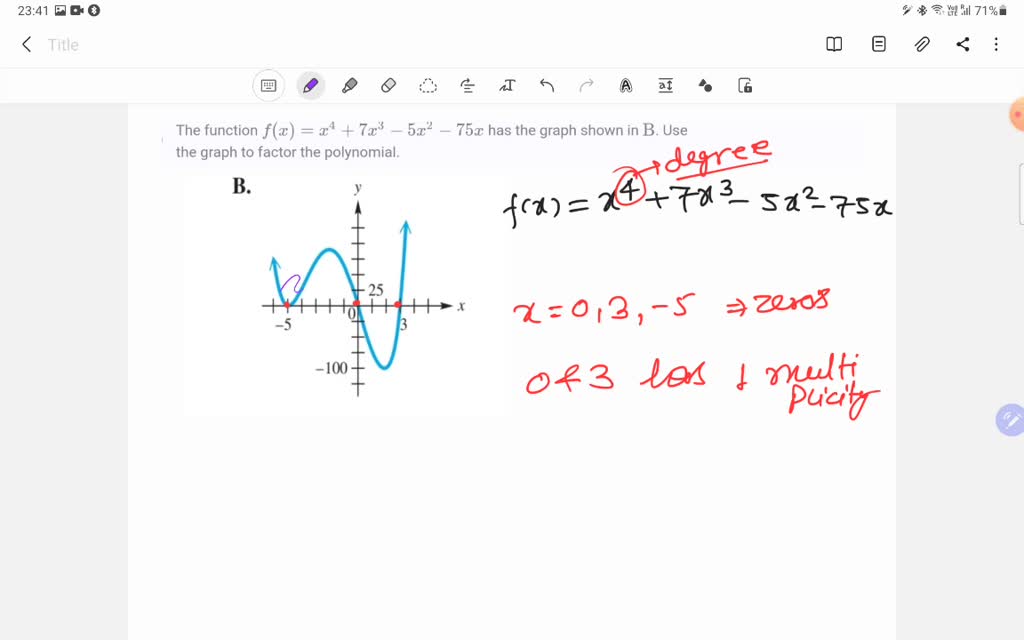 23:41 71%
Title
The function f(x) = x⁴ + 7x³ − 5x² − 75x has the graph shown in B. Use
the graph to factor the polynomial.
→degree
B.
y
f(x) = x⁴ + 7x³ − 5x² − 75x
25
x
0
−5
3
x = 0, 3, −5 ⇒ zeros
−100
0 & 3 has 1 multi
plicity